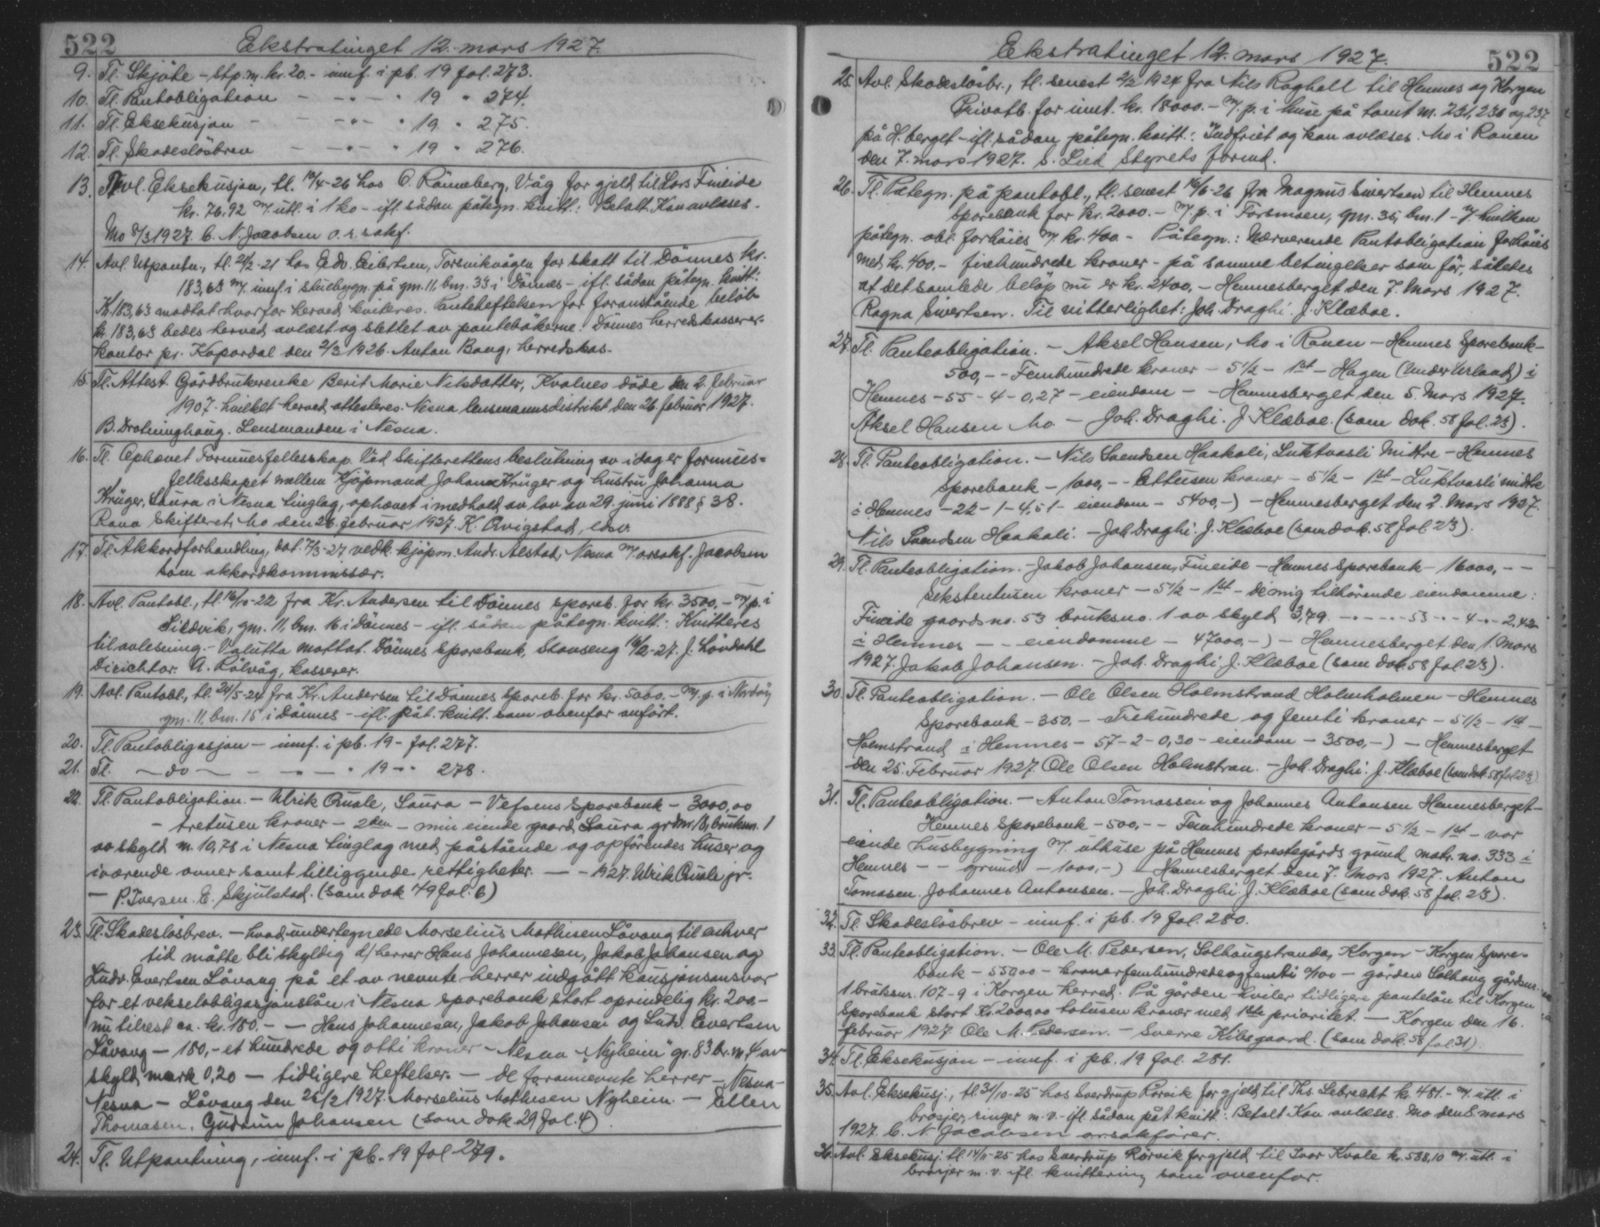 522
Ekstratinget 12. mars 1927.
9. Tl. Skjöte - stp. m. kr. 20.- innf. i pb. 19 fol. 273.
10. Tl. Pantobligation - - " - " 19 " 274.
11. Tl. Eksekusjon - - " - " 19 " 275.
12. Tl. Skadeslösbrev - - " - " 19 " 276.
13. Avl. Eksekusjon, tl. /4-26 hos O. Rönneberg, Våg for gjeld til Lars Fineide
kr. 76.92 m/ utl. i 1 ko - ifl. sådan påtegn. kvitt: Betalt. Kan avlæses.
Mo 8/3 1927. C. N. Jacobsen o.r.sakf.
14. Avl. Utpantn., tl. 21/2-21 hos Edv. Eibertsen, Torsvikvågen for skatt til Dönnes kr.
183,63 m/ innf. i stuebygn. på gn. 11, bn. 33 i Dönnes - ifl. sådan påtegn. kvitt:
Kr. 183,63 modtat hvorfor herved kvitteres. Panteheftelsen for foranstående belöb
kr. 183,63 bedes herved avlæst og slettet av pantebökerne. Dönnes herredskasserer-
kontor pr. Kopardal den 2/3 1926. Anton Bang, herredskas.
15. Tl. Attest. Gårdbrukerenke Berit Marie Nilsdatter, Kvalnes döde den 2. februar
1907. hvilket herved attesteres. Nesna lensmannsdistrikt den 26. februar 1927.
B. Drotninghaug. Lensmanden i Nesna.
16. Tl. Ophævet Formuesfellesskap. Ved Skifterettens beslutning av idag er formues-
fellesskapet mellem Kjöpmand Johan Krüger og hustru Johanna
Krüger, Saura i Nesna tinglag, ophævet i medhold av lov av 29. juni 1888 § 38.
Rana Skifterett, Mo den 26. februar 1927. K. Qvigstad, cst.
17. Tl. Akkordforhandling, dat. 7/3-27 vedk. kjöpm. Andr. Alstad, Nesna m/ orsakf. Jacobsen
som akkordkommissær.
18. Avl. Pantobl., tl. 16/10-22 fra Kr. Andersen til Dönnes spareb. for kr. 3500,- m/ p. i
Sildvik, gn. 11, bn. 16 i Dönnes - ifl. sådan påtegn. kvitt: Kvitteres
til avlesning. Valuta mottat. Dönnes sparebank, Stavseng 16/2-27. J. Lövdahl
direktör. A. Rölvåg, kasserer.
19. Avl. Pantobl., tl. 24/5-24 fra Kr. Andersen til Dönnes spareb. for kr. 5000,- m/ p. i
gn. 11, bn. 15 i Dönnes - ifl. påt. kvitt. som ovenfor anfört.
20. Tl. Pantobligasjon - innf. i pb. 19 - fol. 277.
21. Tl. - do - - " - " 19 - " 278.
22. Tl. Pantobligation - Ulrik Quale, Saura - Vefsens Sparebank - 3000,00
- tretusen kroner - 2den - min eiende gaard Saura gr.dnr. 18, bruksn. 1
av skyld m. 10,78 i Nesna tinglag med påstående og opförendes huser og
iværende ovner samt tilliggende rettigheter. - - 1927. Ulrik Quale jr.
- P. Iversen. E. Skjulstad. (som dok. 49 fol. 6)
23. Tl. Skadeslösbrev. - hvad undertegnede Morselius Mathisen Låvong til enhver
tid måtte bli skyldig d/ herrer Hans Johannesen, Jakob Johansen og
Ludv. Evertsen Låvong på et av nevnte herrer indgått kausjonsansvar
for et vekselobligasjonslån i Nesna sparebank stort oprindelig kr. 200-
nu tilrest ca. kr. 180.- - Hans Johannesen, Jakob Johansen og Ludv. Evertsen
Låvong - 180,- et hundrede og otti kroner - Nesna - "Nyheim" gr. 83 br. nr. 4 av
skyld mark 0,20 - tidligere heftelser - de forannevnte herrer - Nesna-
Nesna - Låvong den 25/2 1927. Morselius Mathisen Nyheim. - Ellen
Thomasen, Gudrun Johansen (som dok. 29 fol. 4).
24. Tl. Utpantning, innf. i pb. 19 fol. 279.
Ekstratinget 12. mars 1927.
522
25. Avl. Skadeslösbr., tl. senest 2/2 1924 fra Nils Røghøll til Hemnes og Korgen
Privatb. for innt. kr. 18000.- m/ p. i huse på tomt nr. 231, 236 og 237
på H.berget - ifl. sådan påtegn. kvitt: Indfriet og kan avlæses. Mo i Ranen
den 7. mars 1927. S. Lied styrets formd.
26. Tl. Påtegn. på pantobl., tl. senest 16/6-26 fra Magnus Sivertsen til Hemnes
Sparebank for kr. 2000.- m/ p. i Forsmoen, gn. 35, bn. 1 - v/ hvilken
påtegn. obl. forhöies m/ kr. 400 - Påtegn.: Nærværende Pantobligation forhöies
med kr. 400.- firehundrede kroner - på samme betingelser som för, således
at det samlede belöp nu er kr. 2400,- Hemnesberget den 7. Mars 1927.
Ragna Sivertsen. Til vitterlighet: Joh. Draghi. J. Klæboe.
27. Tl. Panteobligation. - Aksel Hansen, Mo i Ranen - Hemnes Sparebank-
500,- - Femhundrede kroner - 5 1/2 - 1st - Hagen (Under Urland) i
Hemnes - 55 - 4 - 0,27 - eiendom - - Hemnesberget den 5. Mars 1927.
Aksel Hansen Mo - Joh. Draghi. J. Klæboe. (som dok. 58 fol. 23).
28. Tl. Panteobligation. - Nils Svendsen Haakali, Luktvasli Midtre - Hemnes
Sparebank - 1000,- - Ettusen kroner - 5 1/2 - 1st - Luktvasli midtre
i Hemnes - 22 - 1 - 4,51 - eiendom - 5400,-) - Hemnesberget den 2. Mars 1927.
Nils Svendsen Haakali. - Joh. Draghi. J. Klæboe (som dok. 58 fol. 23).
29. Tl. Panteobligation. - Jakob Johansen, Fineide - Hemnes Sparebank - 16000,- -
Sekstentusen kroner - 5 1/2 - 1st - De mig tilhörende eiendomme:
Fineide gaards no. 53 bruksno. 1 av skyld 3,79. - - - - 53 - 4 - 2,42
i Hemnes - - eiendomme - 47000,-) - Hemnesberget den 1. Mars
1927. Jakob Johansen. - Joh. Draghi. J. Klæboe (som dok. 58 fol. 23).
30. Tl. Panteobligation. - Ole Olsen Holmstrand Holmholmen - Hemnes
Sparebank - 350,- - Trehundrede og femti kroner - 5 1/2 - 1st -
Holmstrand i Hemnes - 57 - 2 - 0,30 - eiendom - 3500,-) - Hemnesberget
den 25. Februar 1927. Ole Olsen Holmstran. - Joh. Draghi. J. Klæboe (som dok. 58 fol. 23)
31. Tl. Panteobligation. - Anton Tomassen og Johannes Antonsen Hemnesberget-
Hemnes Sparebank - 500,- - Femhundrede kroner - 5 1/2 - 1st - vor
eiende husbygning m/ uthuse på Hemnes prestegårds grund matr. no. 333 i
Hemnes - - grund - 1000,-) - Hemnesberget den 7. Mars 1927. Anton
Tomasen. Johannes Antonsen. - Joh. Draghi. J. Klæboe. (som dok. 58 fol. 23).
32. Tl. Skadeslösbrev - innf. i pb. 19 fol. 280.
33. Tl. Panteobligation. - Ole M. Pedersen, Solhaugstranda, Korgen - Korgen Spare-
bank - 550,00 - kroner femhundredeogfemti 0/00 - gården Solhaug gårdsnr.
1. bruksnr. 107-9 i Korgen herred. På gården hviler tidligere pantelån til Korgen
Sparebank stort Kr. 2000,00 totusen kroner med 1ste prioritet. - Korgen den 16.
februar 1927. Ole M. Pedersen. - Sverre Kibsgaard. (som dok. 58 fol. 31).
34. Tl. Eksekusjon - innf. i pb. 19 fol. 281.
35. Avl. Eksekusj., tl. 31/10-25 hos Sverdrup Rörvik for gjeld til Ths. Lebrecht kr. 451.- m/ utl. i
brosjer, ringer m.v. - ifl. sådan påt. kvitt: Betalt. Kan avlæses. Mo den 8 mars
1927. C. N. Jacobsen orsakförer.
36. Avl. Eksekusj. tl. 17/11-25 hos Sverdrup Rörvik for gjeld til Ivar Kvale kr. 588,10 m/ utl. i
brosjer m.v. ifl. kvittering som ovenfor.